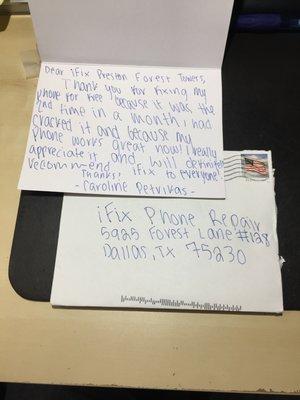 Dear iFix Preston Forest Towers,
Thank you for fixing my
phone for free because it was the
2nd time in a month i had
cracked it and because my
phone works great now! I really
appreciate it and will definitely
recommend iFix to everyone!
Thanks!
-Caroline Petrikas-
iFix Phone Repair
5925 Forest Lane #128
Dallas, TX 75230